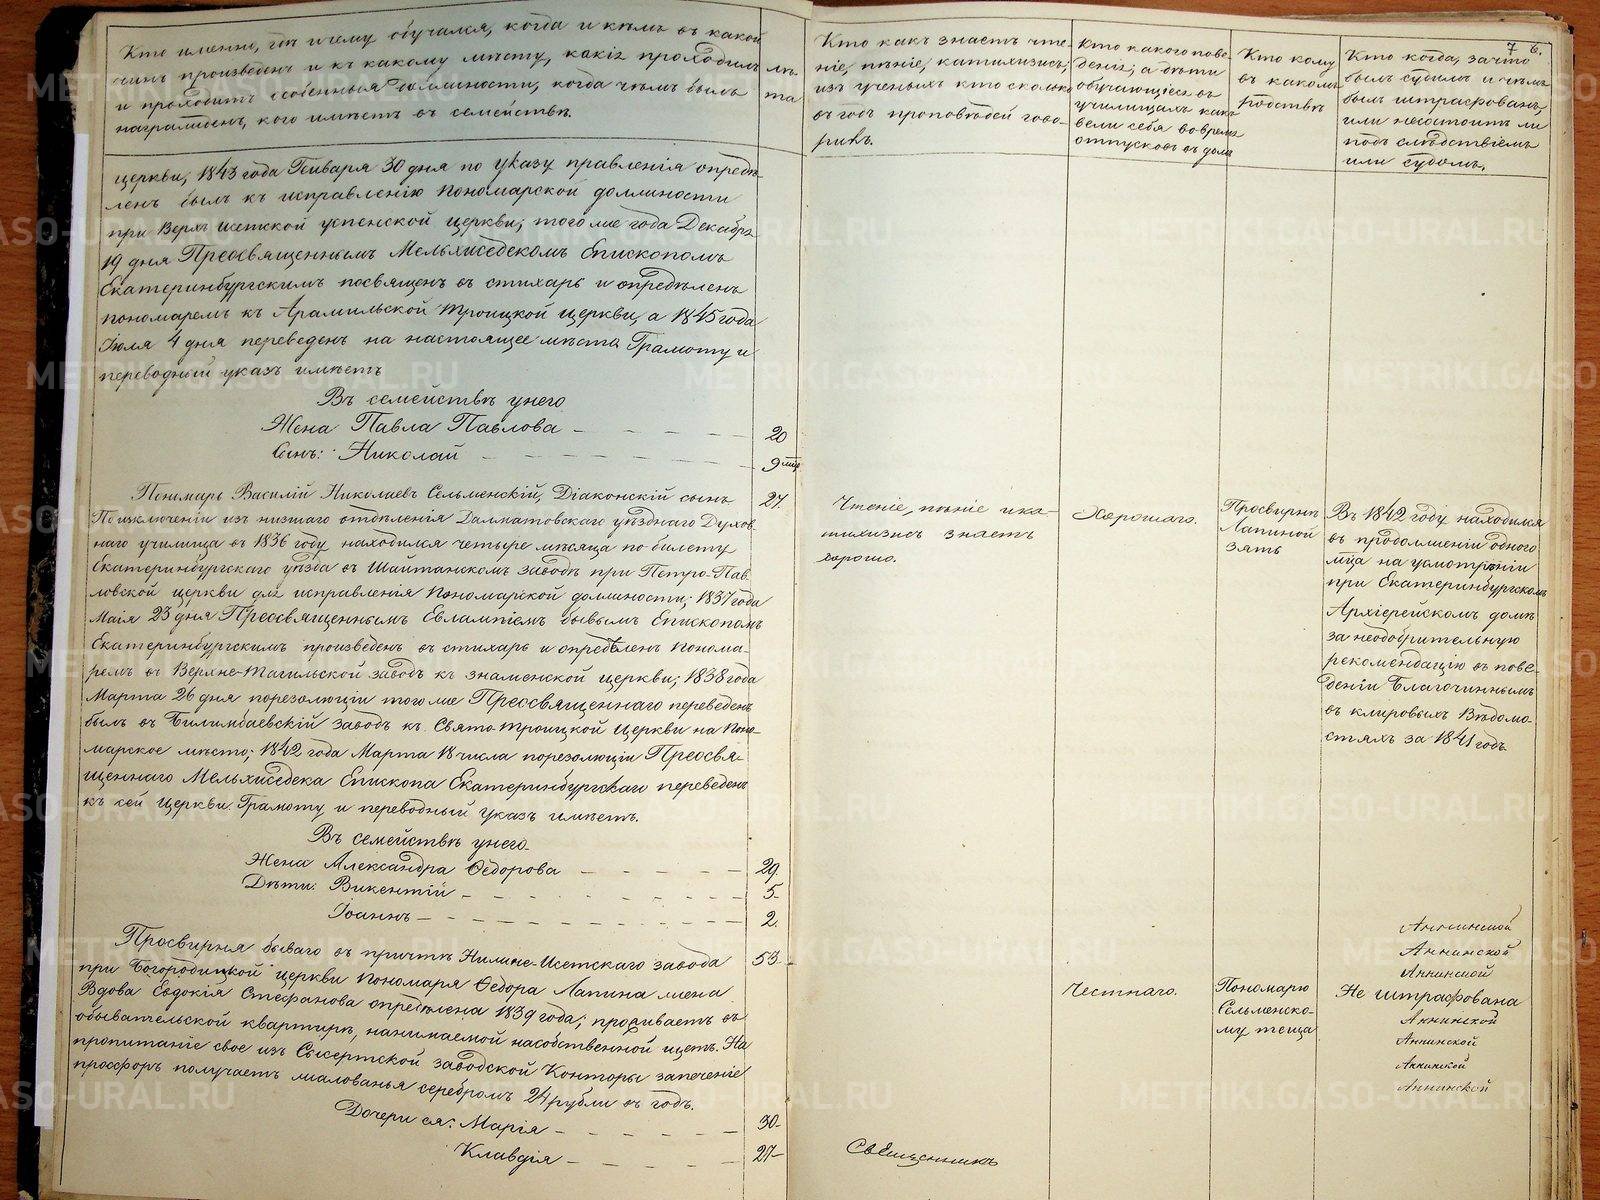 Кто именно, где и чему обучался, когда и кѣмъ въ какой
чинъ произведенъ и къ какому мѣсту, какія проходилъ
и проходитъ особенныя должности, когда чѣмъ былъ
награжденъ, кого имѣетъ въ семействѣ.
лѣ-
та
Кто какъ знаетъ чте-
ніе, пѣніе, катихизисъ;
изъ ученыхъ кто сколько
въ годъ проповѣдей гово-
ритъ.
Кто какого пове-
денія; а дѣти
обучающіеся въ
училищахъ какъ
вели себя во время
отпусковъ въ дома
Кто кому
въ какомъ
родствѣ
7 6.
Кто когда, за что
былъ судимъ и чѣмъ
былъ штрафованъ,
или несостоитъ ли
подъ слѣдствіемъ
или судомъ.
церкви, 1843 года Генваря 30 дня по указу правленія опредѣ-
ленъ былъ къ исправленію пономарской должности
при Верхъ Исетской успенской церкви; того же года Декабря
19 дня Преосвященнымъ Мельхиседекомъ Епископомъ
Екатеринбургскимъ посвященъ въ стихарь и опредѣленъ
пономаремъ къ Арамильской троицкой церкви, а 1845 года
Іюля 4 дня переведенъ на настоящее мѣсто Грамоту и
переводный указъ имѣетъ
Въ семействѣ у него
Жена Павла Павлова 20
Сынъ: Николай 9 мѣц.
Пономарь Василій Николаевъ Сельменскій, Діаконскій сынъ 27.
По изключеніи изъ низшаго отдѣленія Далматовскаго уѣзднаго Духов-
наго училища въ 1836 году находился четыре мѣсяца по билету
Екатеринбургскаго уѣзда въ Шайтанскомъ заводѣ при Петро-Пав-
ловской церкви для исправленія пономарской должности; 1837 года
Маія 23 дня Преосвященнымъ Евлампіемъ бывымъ Епископомъ
Екатеринбургскимъ произведенъ въ стихарь и опредѣленъ понома-
ремъ въ Верхне-Тагильской заводъ къ знаменской церкви; 1838 года
Марта 26 дня порезолюціи того же Преосвященнаго переведенъ
былъ въ Билимбаевскій заводъ къ Свято-троицкой Церкви на поно-
марское мѣсто; 1842 года Марта 18 числа порезолюціи Преосвя-
щеннаго Мельхиседека Епископа Екатеринбургскаго переведенъ
къ сей Церкви. Грамоту и переводный указъ имѣетъ.
Чтеніе, пѣніе и ка-
тихизисъ знаетъ
хорошо.
Хорошаго.
Просвирнѣ
Лапиной
зять
Въ 1842 году находился
въ продолженіи одного
мѣца на усмотрѣніи
при Екатеринбургскомъ
Архіерейскомъ домѣ
за неодобрительную
рекомендацію въ пове-
деніи Благочиннымъ
въ клировыхъ Вѣдомо-
стяхъ за 1841 годъ
Въ семействѣ у него
Жена Александра Ѳедорова 29.
Дѣти: Викентій 5
Іоаннъ 2
Просвирня бываго въ причтѣ Нижне-Исетскаго завода 53
при Богородицкой церкви пономаря Ѳедора Лапина жена
Вдова Евдокія Стефанова опредѣлена 1839 года; проживаетъ въ
обывательской квартирѣ, нанимаемой насобственной щетъ. На
пропитаніе свое изъ Сысертской заводской Конторы запеченіе
просфоръ получаетъ жалованья серебромъ 24 рубли въ годъ.
Честнаго.
Пономарю
Сельменско-
му теща
Аннинской
Аннинской
Аннинской
Не штрафована
Аннинской
Аннинской
Аннинской
Аннинской
Дочери ея: Марія 30
Клавдія 27
Священникъ
METRIKI.GASO-URAL.RU